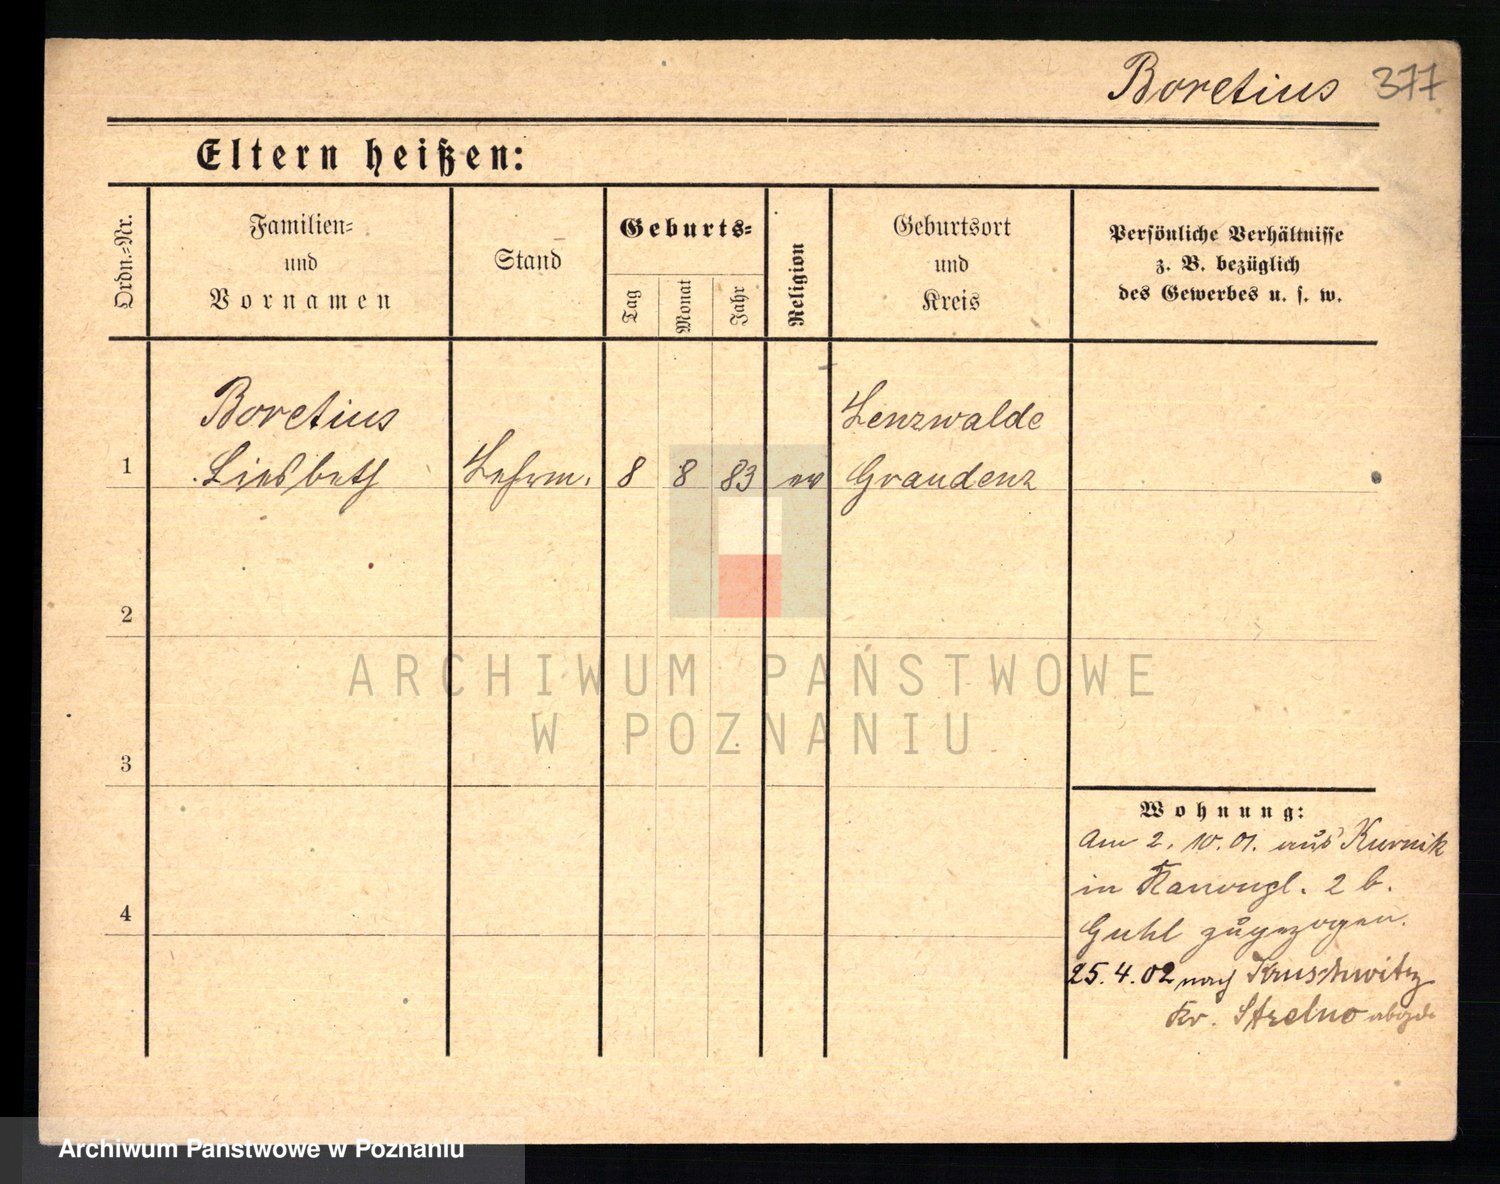 Boretius 377
Eltern heißen:
Ordn.=Nr.
Familien=
und
Vornamen
Stand
Geburts=
Tag
Monat
Jahr
Religion
Geburtsort
und
Kreis
Persönliche Verhältnisse
z. B. bezüglich
des Gewerbes u. s. w.
Boretius Lenzwalde
1 Liesbeth Lehrm. 8 8 83 ev Graudenz
2
3
4
Wohnung:
Am 2. 10. 01. aus Kurnik
in 2 b.
Guhl zugezogen.
25. 4. 02 nach Kruschwitz
Kr. Strelno
ARCHIWUM PAŃSTWOWE
W POZNANIU
Archiwum Państwowe w Poznaniu